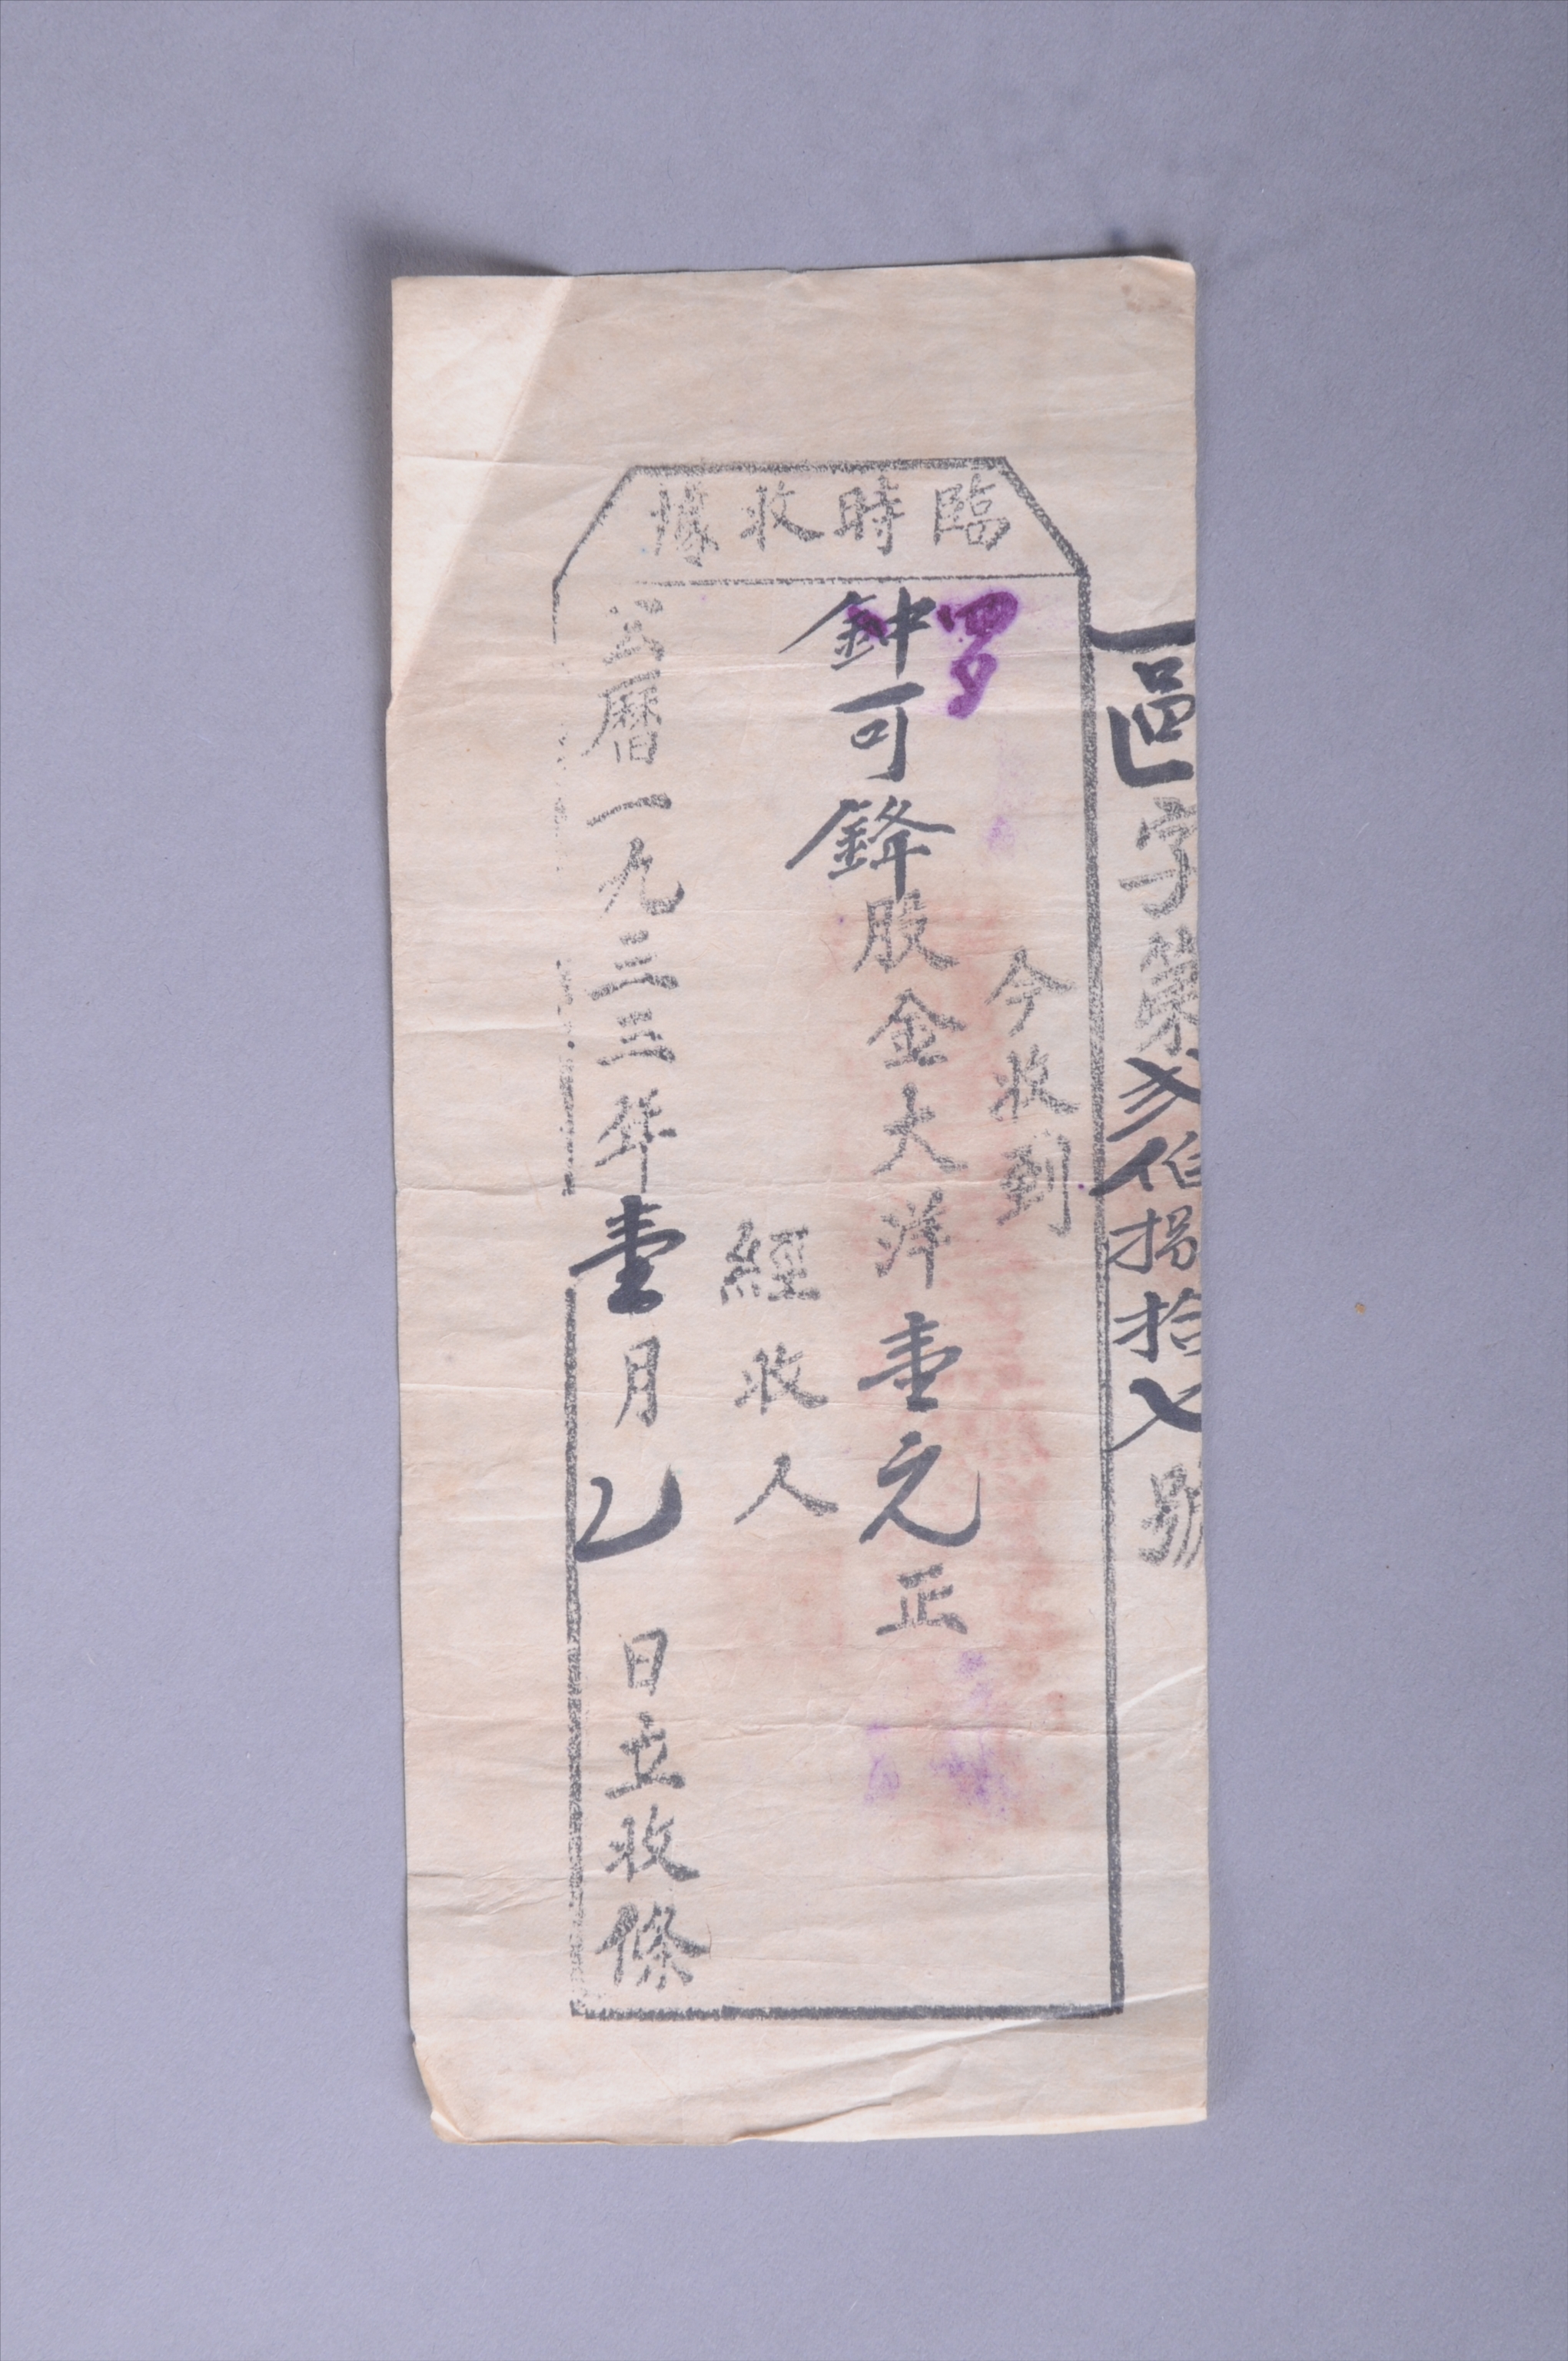 臨時收據
一區字第弍佰捌拾七號
今收到
罗
鈡可鋒股金大洋壹元正
經收人
公曆一九三三年壹月乙日立收條